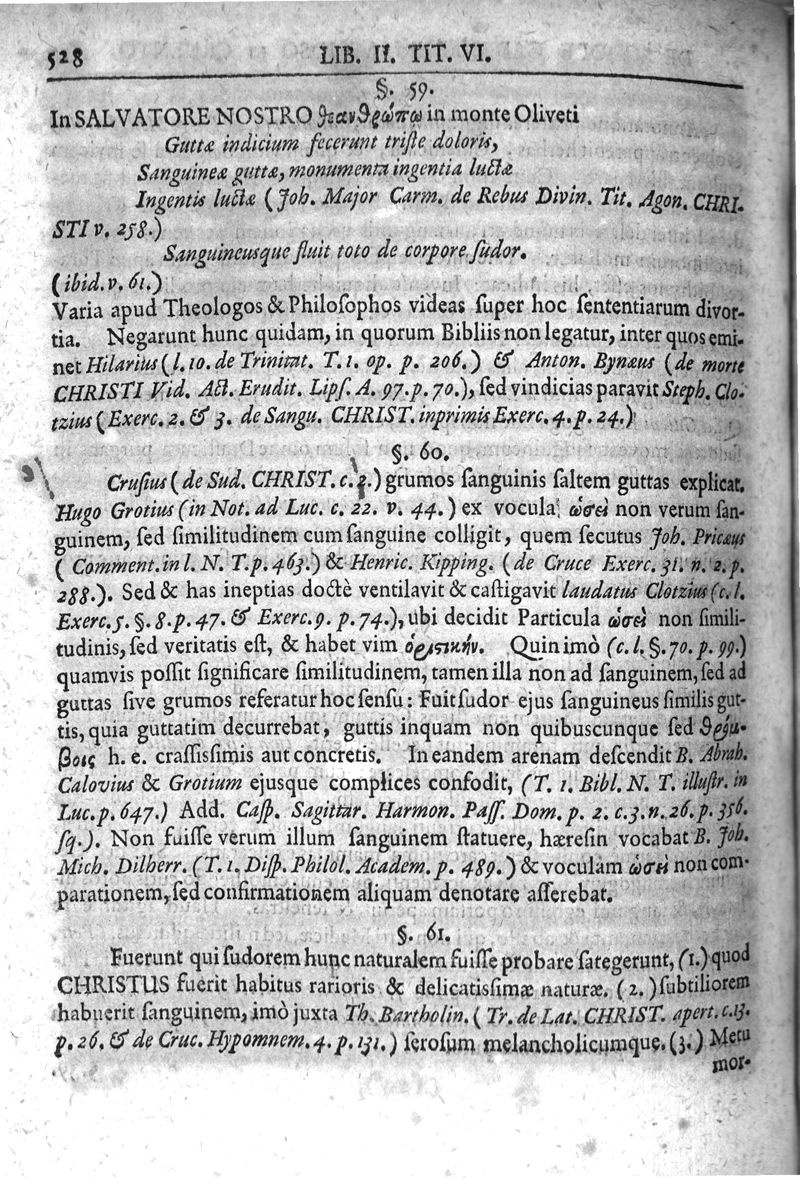 528 LIB. II. TIT. VI.
§. 59.
In SALVATORE NOSTRO θεανθρώπῳ in monte Oliveti
Guttæ indicium fecerunt triſte doloris,
Sanguineæ guttæ, monumenta ingentia luctæ
Ingentis luctæ (Joh. Major Carm. de Rebus Divin. Tit. Agon. CHRI-
STI v. 258.)
Sanguineusque fluit toto de corpore ſudor.
(ibid. v. 61.)
Varia apud Theologos & Philoſophos videas ſuper hoc ſententiarum divor-
tia. Negarunt hunc quidam, in quorum Bibliis non legatur, inter quos emi-
net Hilarius (l. 10. de Trinitat. T. 1. op. p. 206.) & Anton. Bynæus (de morte
CHRISTI Vid. Act. Erudit. Lipſ. A. 97. p. 70.), ſed vindicias paravit Steph. Clo-
tzius (Exerc. 2. & 3. de Sangu. CHRIST. inprimis Exerc. 4. p. 24.)
§. 60.
Cruſius (de Sud. CHRIST. c. 2.) grumos ſanguinis ſaltem guttas explicat.
Hugo Grotius (in Not. ad Luc. c. 22. v. 44.) ex vocula ὡσεὶ non verum ſan-
guinem, ſed ſimilitudinem cum ſanguine colligit, quem ſecutus Joh. Pricæus
(Comment. in l. N. T. p. 463.) & Henric. Kipping. (de Cruce Exerc. 31. n. 2. p.
288.). Sed & has ineptias doctè ventilavit & caſtigavit laudatus Clotzius (c. l.
Exerc. 5. §. 8. p. 47. & Exerc. 9. p. 74.), ubi decidit Particula ὡσεὶ non ſimili-
tudinis, ſed veritatis eſt, & habet vim ὁριστικήν. Quin imò (c. l. §. 70. p. 99.)
quamvis poſſit ſignificare ſimilitudinem, tamen illa non ad ſanguinem, ſed ad
guttas ſive grumos referatur hoc ſenſu: Fuit ſudor ejus ſanguineus ſimilis gut-
tis, quia guttatim decurrebat, guttis inquam non quibuscunque ſed θρόμ-
βοις h. e. craſſiſſimis aut concretis. In eandem arenam deſcendit B. Abrah.
Calovius & Grotium ejusque complices confodit, (T. 1. Bibl. N. T. illuſtr. in
Luc. p. 647.) Add. Caſp. Sagittar. Harmon. Paſſ. Dom. p. 2. c. 3. n. 26. p. 356.
ſq.). Non fuiſſe verum illum ſanguinem ſtatuere, hæreſin vocabat B. Joh.
Mich. Dilherr. (T. 1. Diſp. Philol. Academ. p. 489.) & voculam ὡσεὶ non com-
parationem, ſed confirmationem aliquam denotare aſſerebat.
§. 61.
Fuerunt qui ſudorem hunc naturalem fuiſſe probare ſategerunt, (1.) quod
CHRISTUS fuerit habitus rarioris & delicatiſſimæ naturæ. (2.) ſubtiliorem
habuerit ſanguinem, imò juxta Th. Bartholin. (Tr. de Lat. CHRIST. apert. c. 13.
p. 26. & de Cruc. Hypomnem. 4. p. 131.) ſeroſum melancholicumque. (3.) Metu
mor-